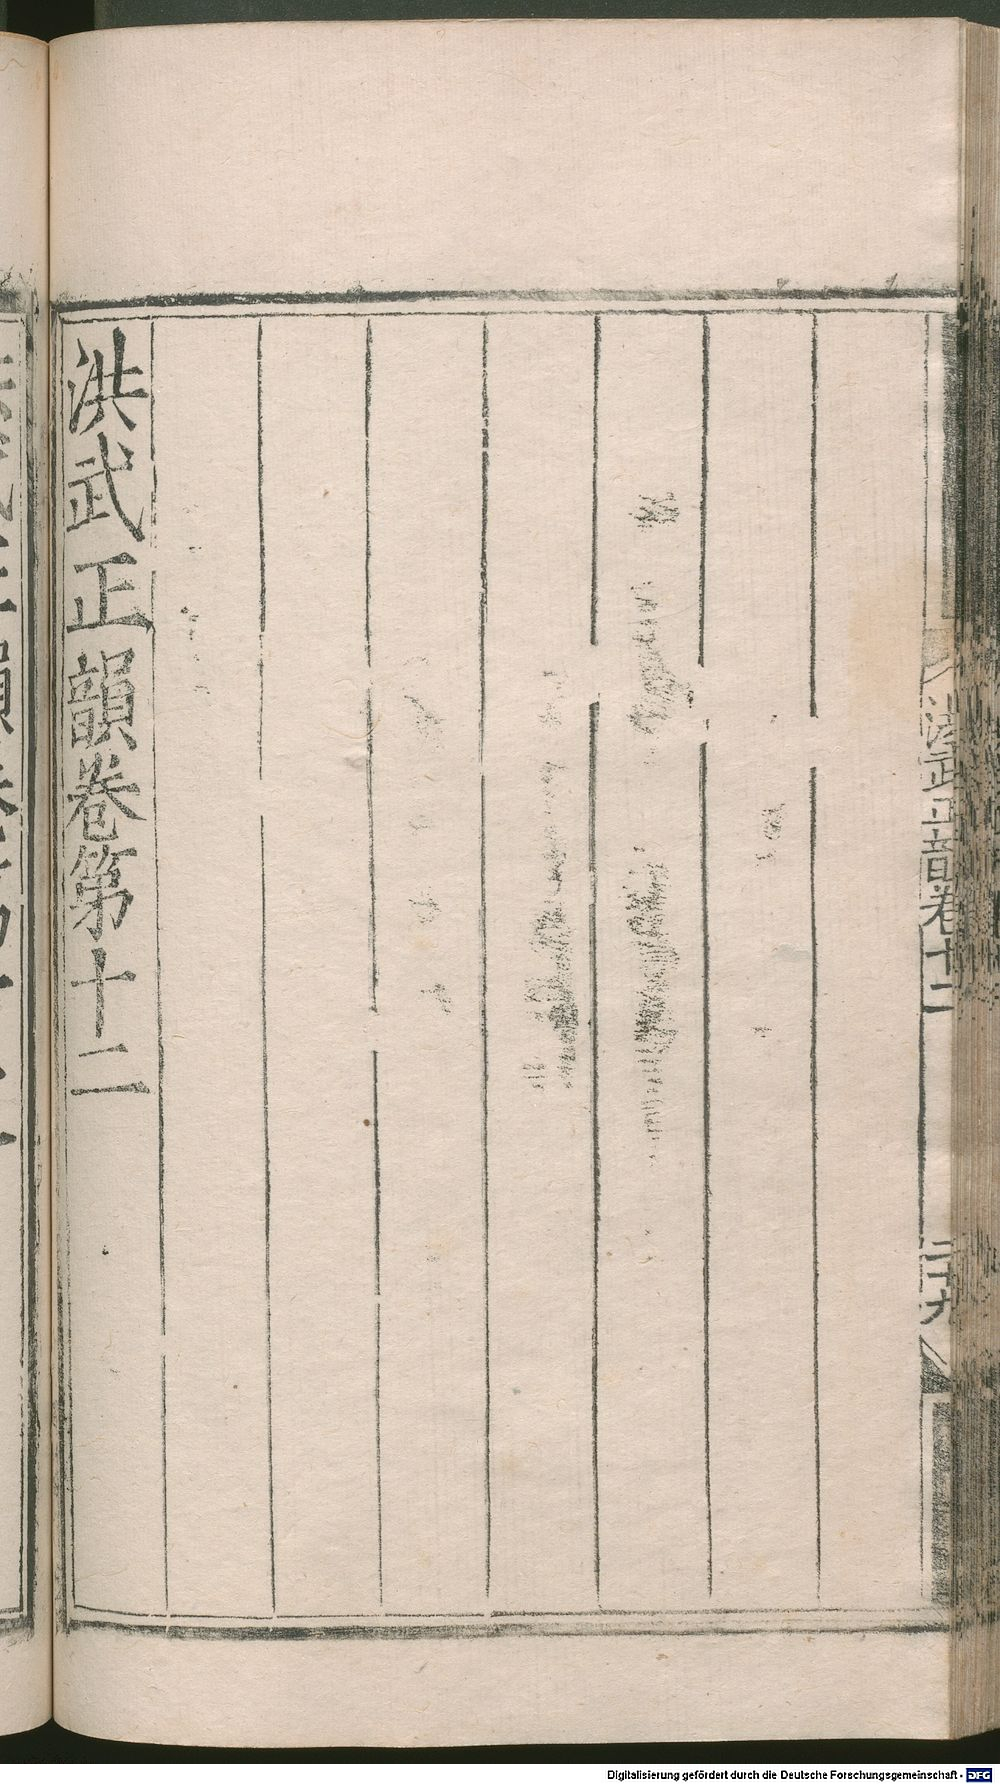 洪武正韻卷十二
二十九
洪武正韻卷第十二
Digitalisierung gefördert durch die Deutsche Forschungsgemeinschaft - DFG